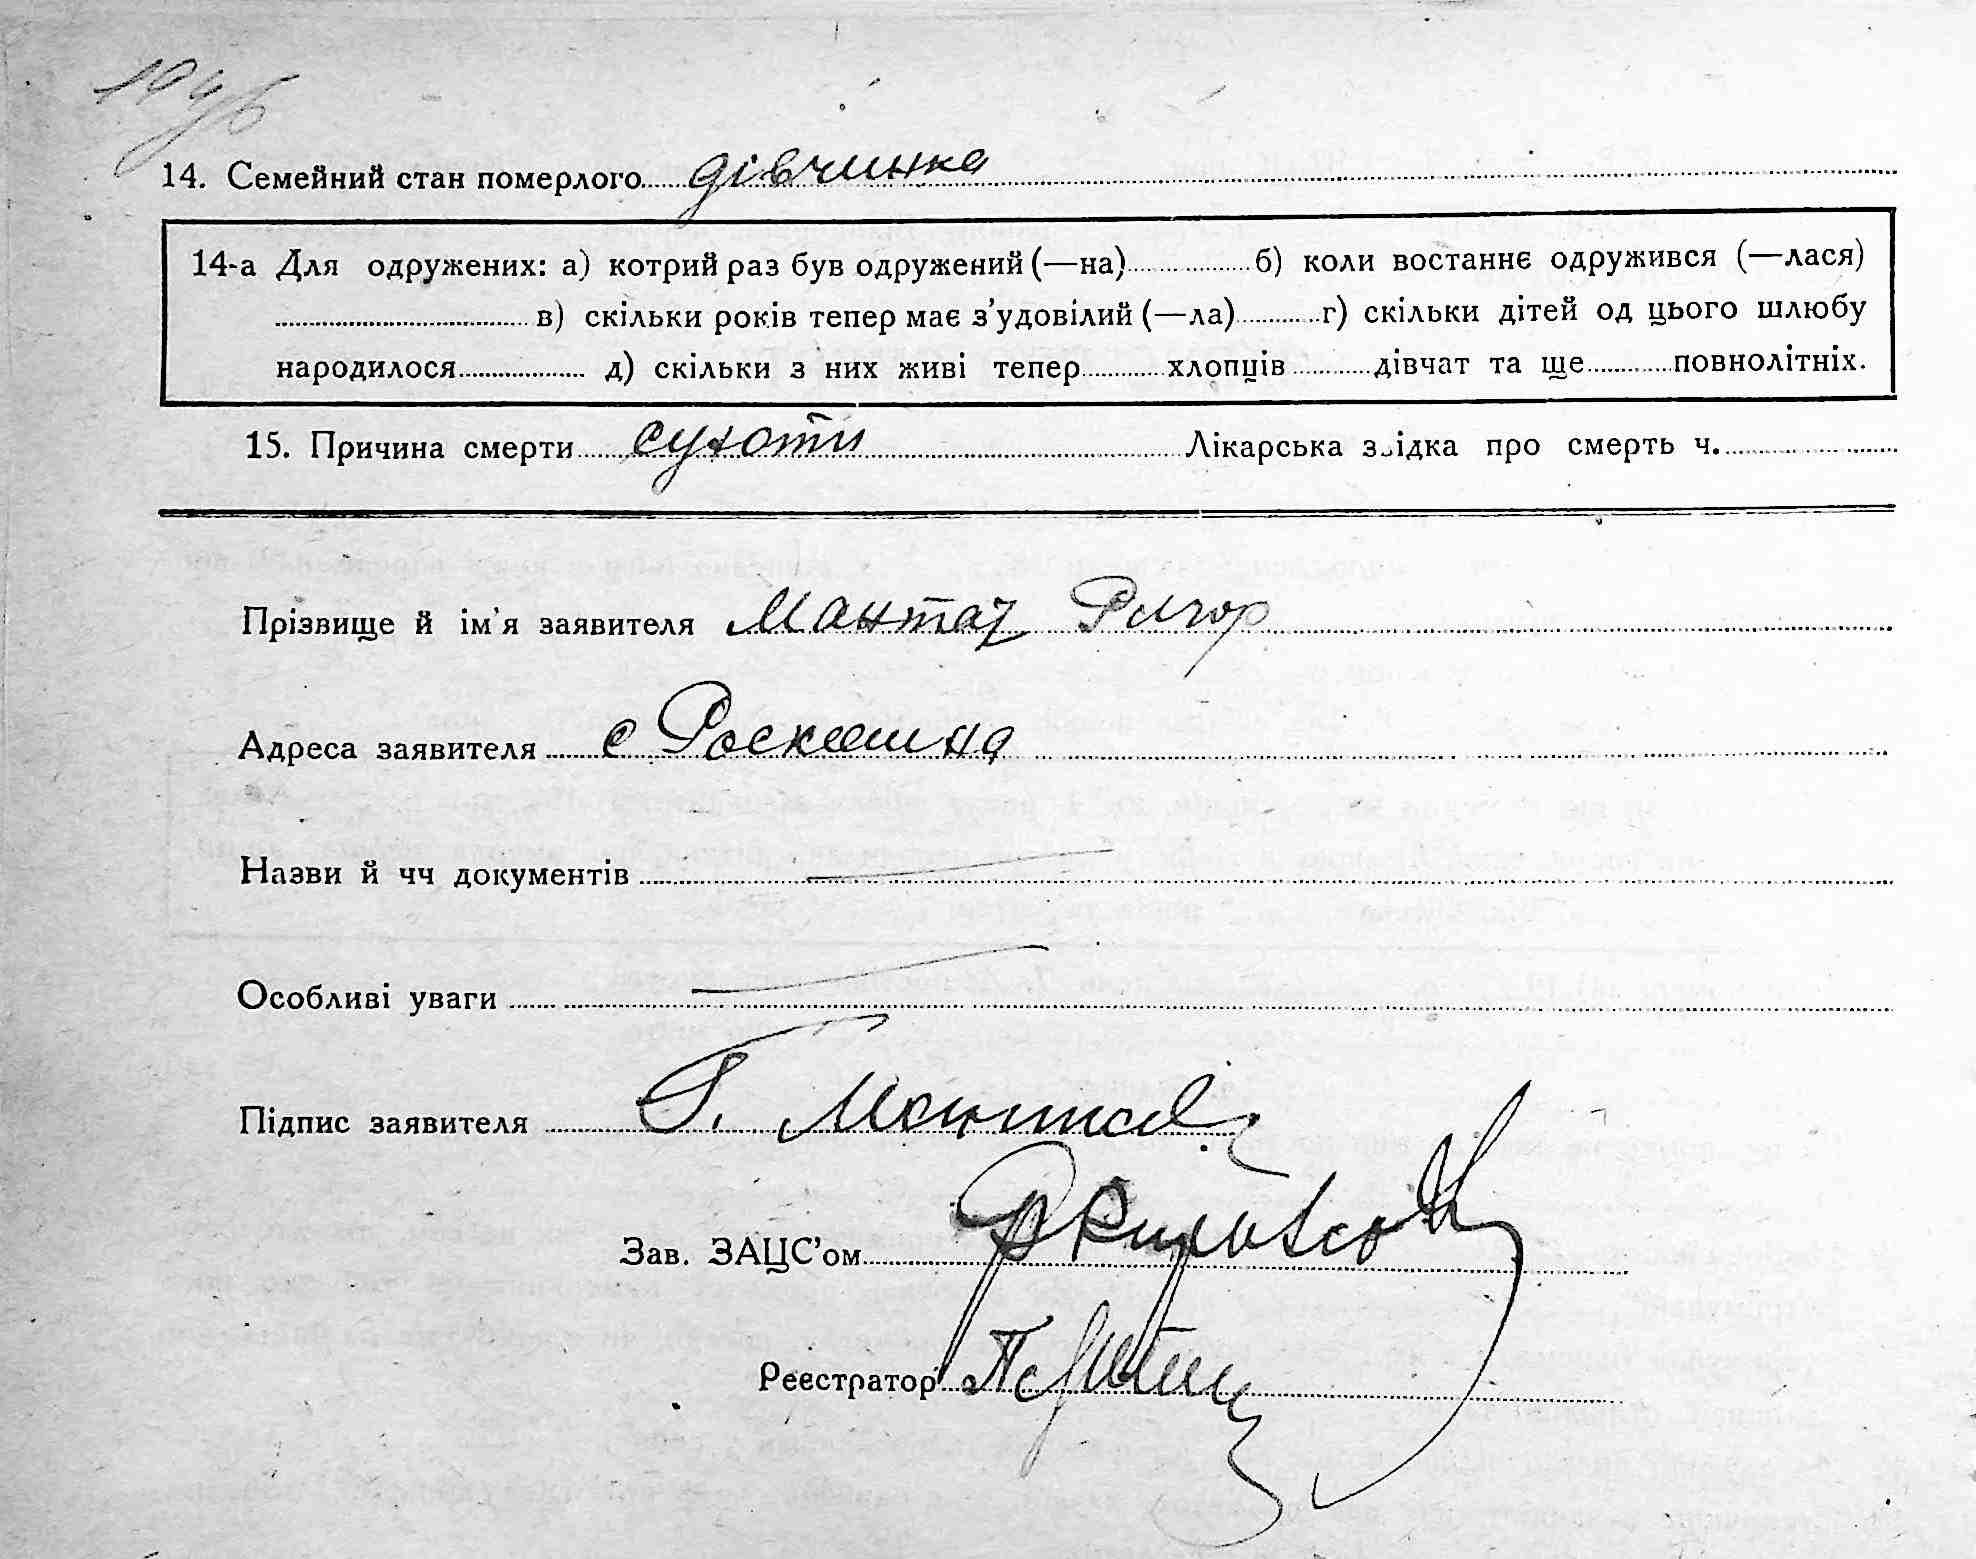 1946
14. Семейний стан померлого дівчинка
14-а Для одружених: а) котрий раз був одружений (—на) б) коли востаннє одружився (—лася)
в) скільки років тепер має з’удовілий (—ла) г) скільки дітей од цього шлюбу
народилося д) скільки з них живі тепер хлопців дівчат та ще повнолітніх.
15. Причина смерти сухоти Лікарська звідка про смерть ч.
Прізвище й ім'я заявителя Мантач Григор
Адреса заявителя с Роскошна
Назви й чч документів —
Особливі уваги —
Підпис заявителя Г. Мантач
Зав. ЗАЦС’ом
Реєстратор